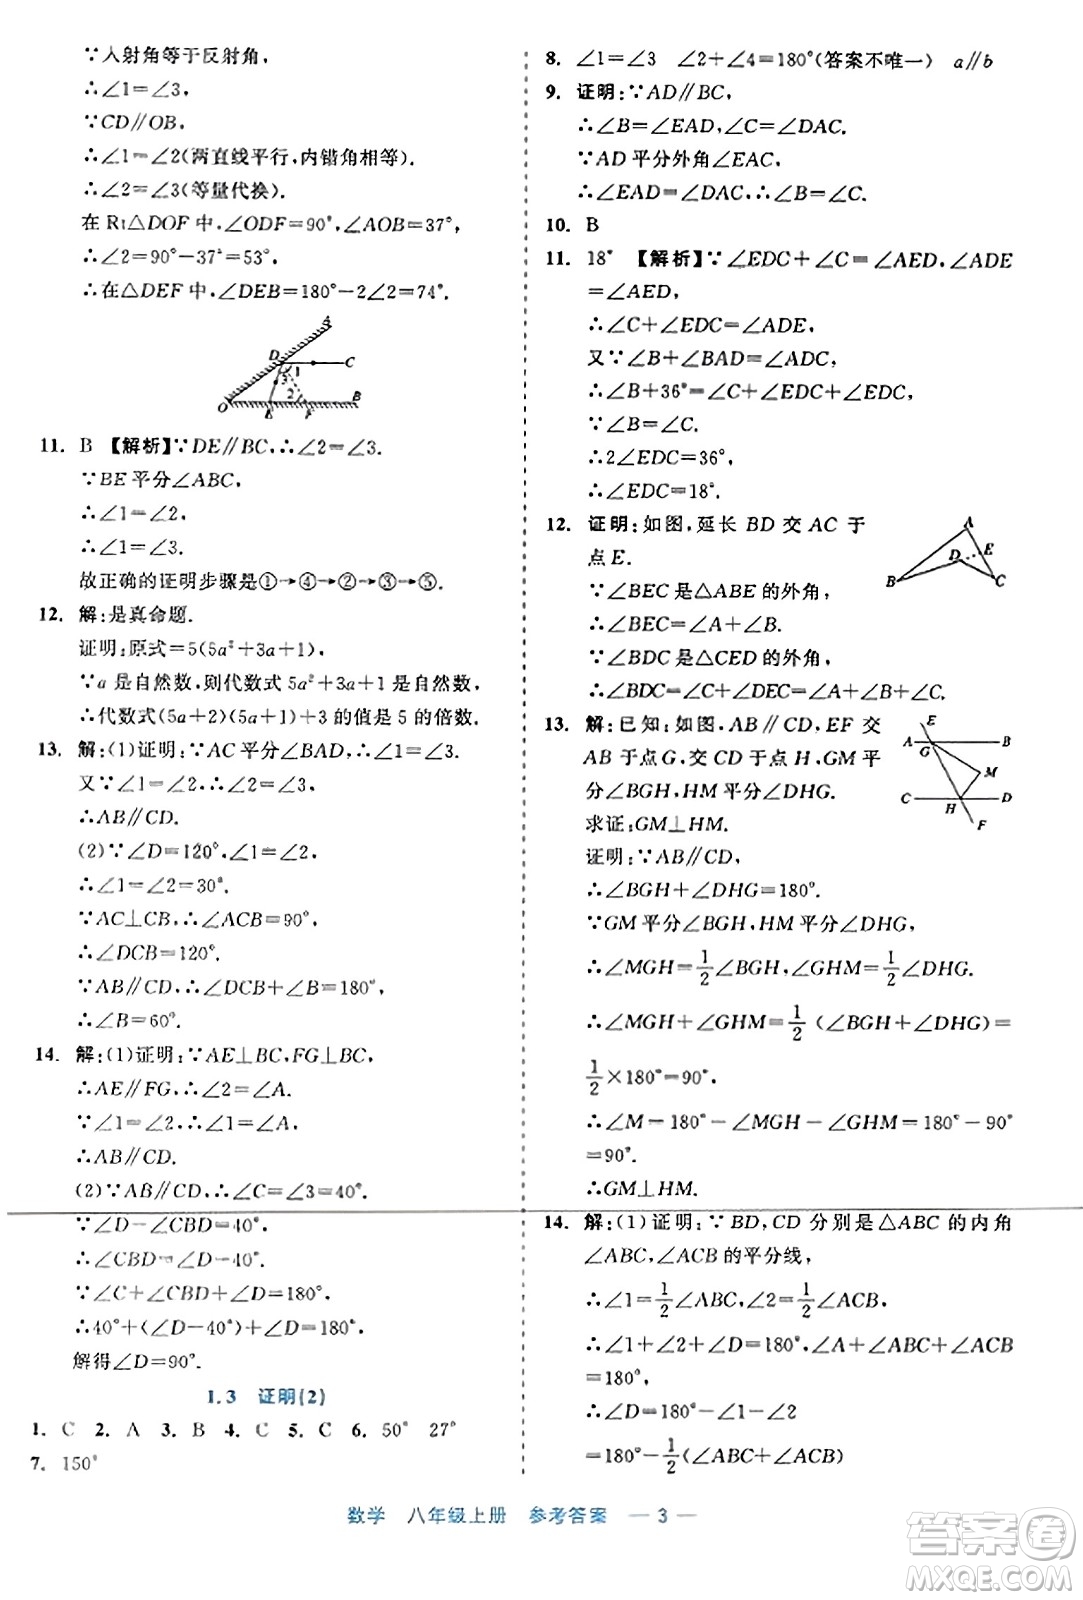 ∵入射角等于反射角,
∴∠1=∠3,
∵CD∥OB,
∴∠1=∠2(两直线平行,内错角相等).
∴∠2=∠3(等量代换).
在 Rt△DOF 中,∠ODF=90°,∠AOB=37°,
∴∠2=90°-37°=53°,
∴在△DEF 中,∠DEB=180°-2∠2=74°.
A
D C
3 1
2
O E F B
11. B 【解析】∵DE∥BC,∴∠2=∠3.
∵BE 平分∠ABC,
∴∠1=∠2,
∴∠1=∠3.
故正确的证明步骤是①→④→②→③→⑤.
12. 解:是真命题.
证明:原式=5(5a²+3a+1),
∵a 是自然数,则代数式 5a²+3a+1 是自然数,
∴代数式(5a+2)(5a+1)+3 的值是 5 的倍数.
13. 解:(1)证明:∵AC 平分∠BAD,∴∠1=∠3.
又∵∠1=∠2,∴∠2=∠3,
∴AB∥CD.
(2)∵∠D=120°,∠1=∠2,
∴∠1=∠2=30°.
∵AC⊥CB,∴∠ACB=90°,
∴∠DCB=120°.
∵AB∥CD,∴∠DCB+∠B=180°,
∴∠B=60°.
14. 解:(1)证明:∵AE⊥BC,FG⊥BC,
∴AE∥FG,∴∠2=∠A.
∵∠1=∠2,∴∠1=∠A,
∴AB∥CD.
(2)∵AB∥CD,∴∠C=∠3=40°.
∵∠D-∠CBD=40°,
∴∠CBD=∠D-40°.
∵∠C+∠CBD+∠D=180°,
∴40°+(∠D-40°)+∠D=180°,
解得∠D=90°.
1.3 证明(2)
1. C 2. A 3. B 4. C 5. C 6. 50° 27°
7. 150°
8. ∠1=∠3 ∠2+∠4=180°(答案不唯一) a∥b
9. 证明:∵AD∥BC,
∴∠B=∠EAD,∠C=∠DAC.
∵AD 平分外角∠EAC,
∴∠EAD=∠DAC,∴∠B=∠C.
10. B
11. 18° 【解析】∵∠EDC+∠C=∠AED,∠ADE
=∠AED,
∴∠C+∠EDC=∠ADE,
又∵∠B+∠BAD=∠ADC,
∴∠B+36°=∠C+∠EDC+∠EDC,
∵∠B=∠C.
∴2∠EDC=36°,
∴∠EDC=18°.
12. 证明:如图,延长 BD 交 AC 于
点 E.
A
D E
B C
∵∠BEC 是△ABE 的外角,
∴∠BEC=∠A+∠B.
∵∠BDC 是△CED 的外角,
∴∠BDC=∠C+∠DEC=∠A+∠B+∠C.
13. 解:已知:如图,AB∥CD,EF 交
AB 于点 G,交 CD 于点 H,GM 平
分∠BGH,HM 平分∠DHG.
求证:GM⊥HM.
E
A G B
M
C H D
F
证明:∵AB∥CD,
∴∠BGH+∠DHG=180°.
∵GM 平分∠BGH,HM 平分∠DHG,
∴∠MGH=1/2∠BGH,∠GHM=1/2∠DHG.
∴∠MGH+∠GHM=1/2(∠BGH+∠DHG)=
1/2×180°=90°.
∴∠M=180°-∠MGH-∠GHM=180°-90°
=90°.
∴GM⊥HM.
14. 解:(1)证明:∵BD,CD 分别是△ABC 的内角
∠ABC,∠ACB 的平分线,
∴∠1=1/2∠ABC,∠2=1/2∠ACB.
∴∠1+∠2+∠D=180°,∠A+∠ABC+∠ACB
=180°,
∴∠D=180°-∠1-∠2
=180°-1/2(∠ABC+∠ACB)
数学 八年级上册 参考答案 — 3 —
答案圈
MXQE.COM